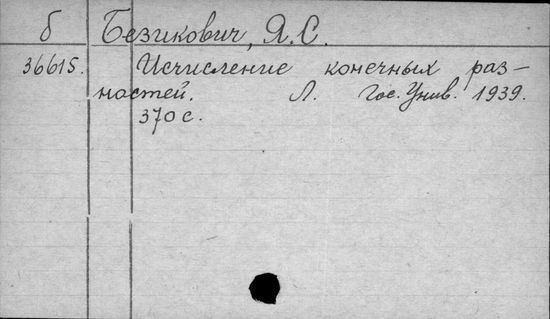 б Безикович, Я.С.
36615. Исчисление конечных раз-
ностей. Л. Гос. Унив. 1939.
370 с.